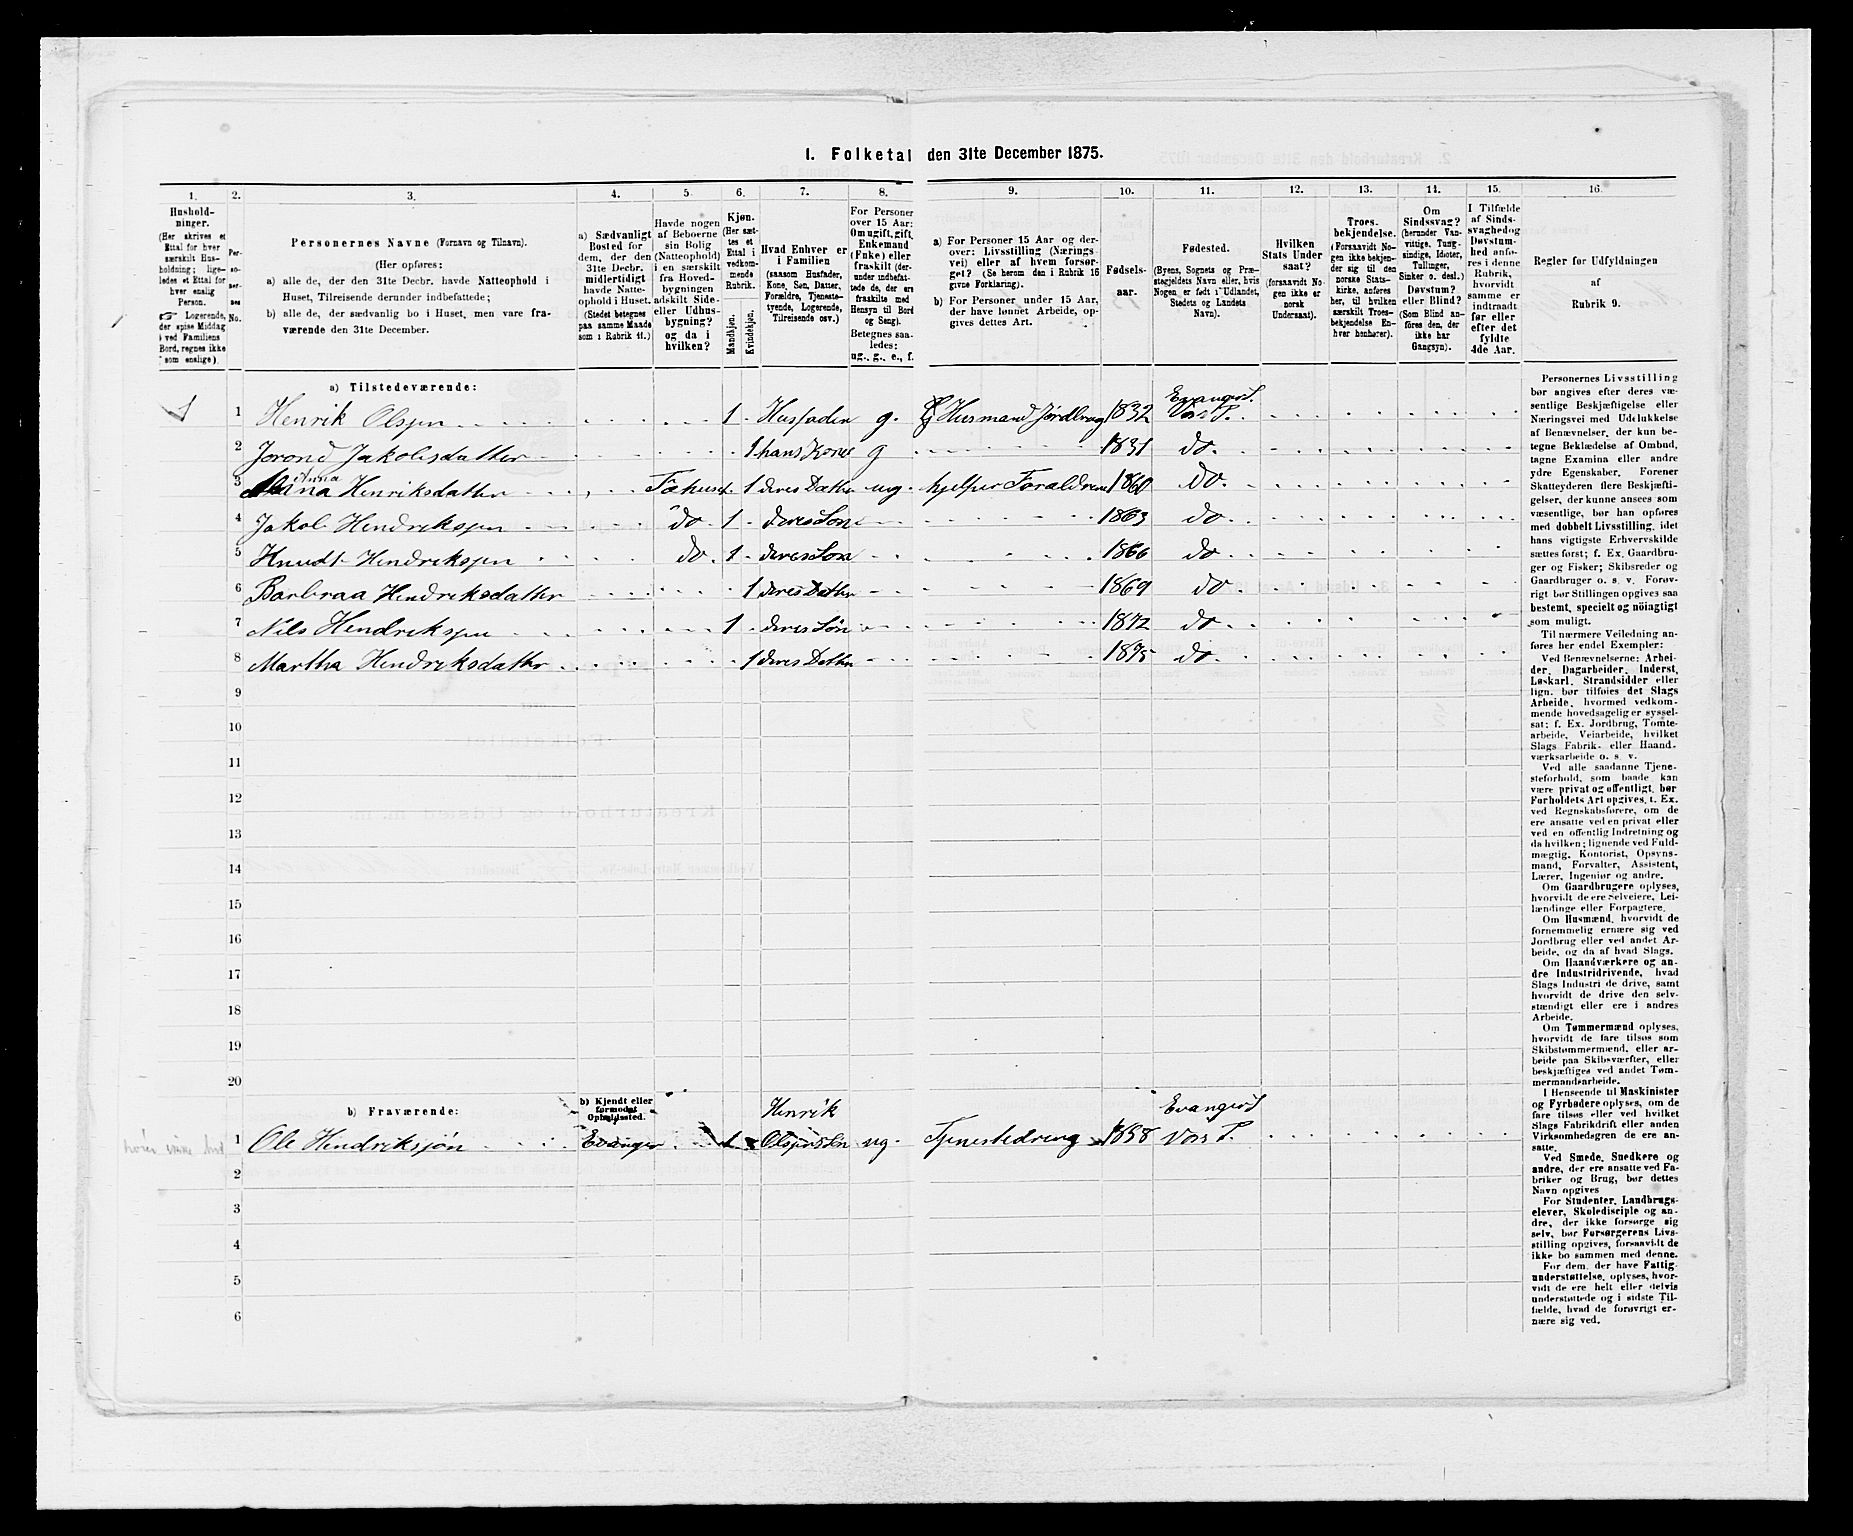 1. Folketal den 31te December 1875.
1. 2. 3. 4. 5. 6. 7. 8. 9. 10. 11. 12. 13. 14. 15. 16.
Husholdninger.
(Her skrives et
Ettal for hver
særskilt Husholdning; ligeledes
et Ettal for
hver enslig
Person.
☞ Logerende,
der spise Middag
ved Familiens
Bord, regnes ikke
som enslige).
Personernes No.
Personernes Navne (Fornavn og Tilnavn).
(Her opføres:
a) alle de, der den 31te Decbr. havde Natteophold i
Huset, Tilreisende derunder indbefattede;
b) alle de, der sædvanlig bo i Huset, men vare fraværende
den 31te December.
a) Sædvanligt
Bosted for
dem, der den
31te Decbr.
midlertidigt
havde Natteophold
i Huset.
(Stedet betegnes
paa samme Maade
som i Rubrik 11.)
Havde nogen
af Beboerne
sin Bolig
(Natteophold)
i en særskilt
fra Hovedbygningen
adskilt Side-
eller Udhusbygning?
og da i
hvilken?
Kjøn.
(Her sættes
et
Ettal i
vedkommende
Rubrik.
Mandkjøn.
Kvindekjøn.
Hvad Enhver er
i Familien
(saasom Husfader,
Kone, Søn, Datter,
Forældre, Tjenestetyende,
Logerende,
Tilreisende osv.)
For Personer
over 15 Aar:
Om ugift, gift,
Enkemand
(Enke) eller
fraskilt (derunder
indbefattede
de, der ere
fraskilte med
Hensyn til Bord
og Seng).
Betegnes saaledes:
ug., g., e., f.
a) For Personer 15 Aar og derover:
Livsstilling (Næringsvei)
eller af hvem forsørget?
(Se herom den i Rubrik 16
givne Forklaring).
b) For Personer under 15 Aar,
der have lønnet Arbeide, opgives
dettes Art.
Fødselsaar.
Fødested.
(Byens, Sognets og Præstegjeldets
Navn eller, hvis
Nogen er født i Udlandet,
Stedets og Landets
Navn).
Hvilken
Stats Undersaat?
(forsaavidt Nogen
ikke er
norsk
Undersaat).
Troesbekjendelse.
(Forsaavidt Nogen
ikke bekjender
sig til den
norske Statskirke,
anføres
her, til hvilken
særskilt Troesbekjendelse
Enhver
henhører).
Om
Sindssvag?
(herunder Vanvittige,
Tungsindige,
Idioter,
Tullinger,
Sinker o. desl.)
Døvstum?
eller Blind?
(Som Blind anføres
den, der
ikke har
Gangsyn).
I Tilfælde
af Sindssvaghed
og
Døvstumhed
anføres
i denne
Rubrik,
hvorvidt
samme er
indtraadt
før eller
efter det
fyldte
4de Aar.
Regler for Udfyldningen
af
Rubrik 9.
a) Tilstedeværende:
1 1 Henrik Olsen 1 Husfader g. Husmand Jordbrug 1832 Evanger S. Vors P.
2 Jorond Jakobsdatter 1 hans Kone g 1831 do.
3 Anna Henriksdatter Fæhuset 1 deres Datter ug hjelper Forældrene 1860 do.
4 Jakob Hendriksen do. 1 deres Søn 1863 do
5 Knudt Hendriksen do. 1 deres Søn 1866 do
6 Barbraa Hendriksdatter 1 deres Datter 1869 do
7 Nils Hendriksen 1 deres Søn 1872 do.
8 Martha Hendriksdatter 1 deres Datter 1875 do.
9
10
11
12
13
14
15
16
17
18
19
20
b) Fraværende:
b) Kjendt eller
formodet
Opholdssted.
1 Ole Hendriksøn Evanger 1 Henrik Olsens Søn ug. Tjenestedreng 1858 Evanger S Vors P.
2
3
4
5
6
Personernes Livsstilling
bør angives efter deres væsentlige
Beskjæftigelse eller
Næringsvei med Udelukkelse
af Benævnelser, der kun betegne
Beklædelse af Ombud,
tagne Examina eller andre
ydre Egenskaber. Forener
Skatteyderen flere Beskjæftigelser,
der kunne ansees som
væsentlige, bør han opføres
med dobbelt Livsstilling, idet
hans vigtigste Erhvervskilde
sættes først; f. Ex. Gaardbruger
og Fisker; Skibsreder og
Gaardbruger o. s. v. Forøvrigt
bør Stillingen opgives saa
bestemt, specielt og nøiagtigt
som muligt.
Til nærmere Veiledning anføres
her endel Exempler:
Ved Benævnelserne: Arbeider,
Dagarbeider, Inderst,
Løskarl, Strandsidder eller
lign. bør tilføies det Slags
Arbeide, hvormed vedkommende
hovedsagelig er sysselsat;
f. Ex. Jordbrug, Tomtearbeide,
Veiarbeide, hvilket
Slags Fabrik- eller Haandværksarbeide
o. s. v.
Ved alle saadanne Tjenesteforhold,
som baade kan
være privat og offentligt, bør
Forholdets Art opgives, t. Ex.
ved Regnskabsførere, om de
ere ansatte ved en privat eller
ved en offentlig Indretning og
da hvilken; lignende ved Fuldmægtig,
Kontorist, Opsynsmand,
Forvalter, Assistent,
Lærer, Ingeniør og andre.
Om Gaardbrugere oplyses,
hvorvidt de ere Selveiere, Leilændinge
eller Forpagtere.
Om Husmænd, hvorvidt de
fornemmelig ernære sig ved
Jordbrug eller ved andet Arbeide,
og da af hvad Slags.
Om Haandværkere og andre
Industridrivende, hvad
Slags Industri de drive, samt
hvorvidt de drive den selvstændigt
eller ere i andres
Arbeide.
Om Tømmermænd oplyses,
hvorvidt de fare tilsøs som
Skibstømmermænd, eller arbeide
paa Skibsværfter, eller
beskjæftiges ved andet Tømmermandsarbeide.
I Henseende til Maskinister
og Fyrbødere oplyses, om de
fare tilsøs eller ved hvilket
Slags Fabrikdrift eller anden
Virksomhedsgren de ere ansatte.
Ved Smede, Snedkere og
andre, der ere ansatte ved Fabriker
og Brug, bør dettes
Navn opgives
For Studenter, Landbrugselever,
Skoledisciple og andre,
der ikke forsørge sig
selv, bør Forsørgerens Livsstilling
opgives, forsaavidt de
ikke bo sammen med denne.
For dem, der have Fattigunderstøttelse,
oplyses, hvorvidt
de ere helt eller delvis
understøttede og i sidste Tilfælde,
hvad de forøvrigt ernære
sig ved.